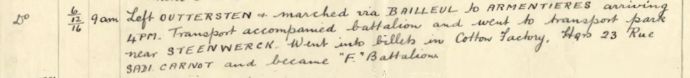 Do 6/12/16 9am Left OUTTERSTEN & marched via BAILLEUL to ARMENTIERES arriving
4PM. Transport accompanied battalion and went to transport park
near STEENWERCK. Went into billets in Cotton Factory, Hqrs 23 Rue
SADI CARNOT and became "F." Battalion